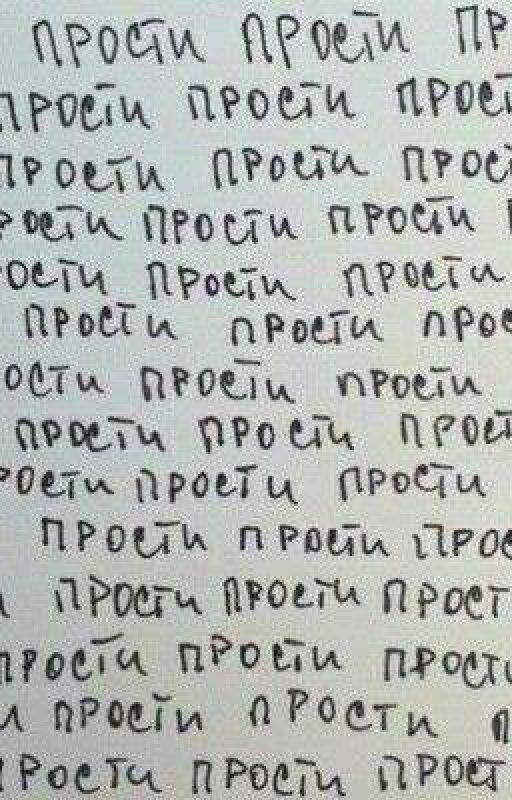 прости прости пр
прости прости прості
прости прости прост
рости прости прости
ости прости прости
прости прости прос
ости прости прости
прости прости прост
рости прости прости
прости прости прос
и прости прости прост
прости прости прости
и прости прости п
прости прости прост